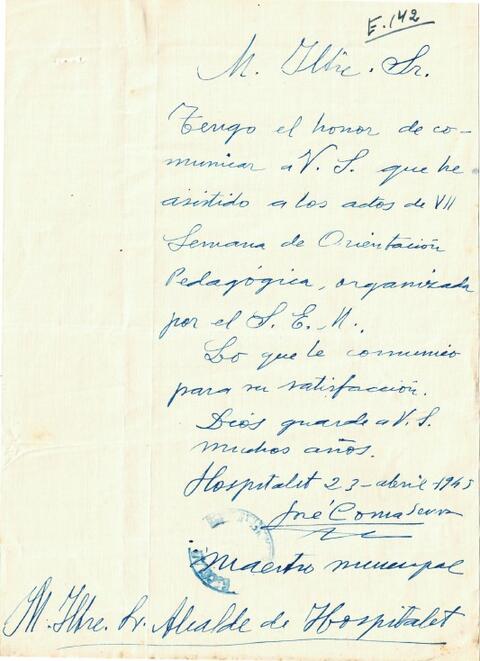 E. 142
M. Iltre. Sr.
Tengo el honor de co-
municar a V. S. que he
asistido a los actos de VII
Semana de Orientación
Pedagógica, organizada
por el S. E. M.
Lo que le comunico
para su satisfacción.
Dios guarde a V. S.
muchos años.
Hospitalet 23-abril-1945
José Coma Serra
Maestro municipal
M. Iltre. Sr. Alcalde de Hospitalet